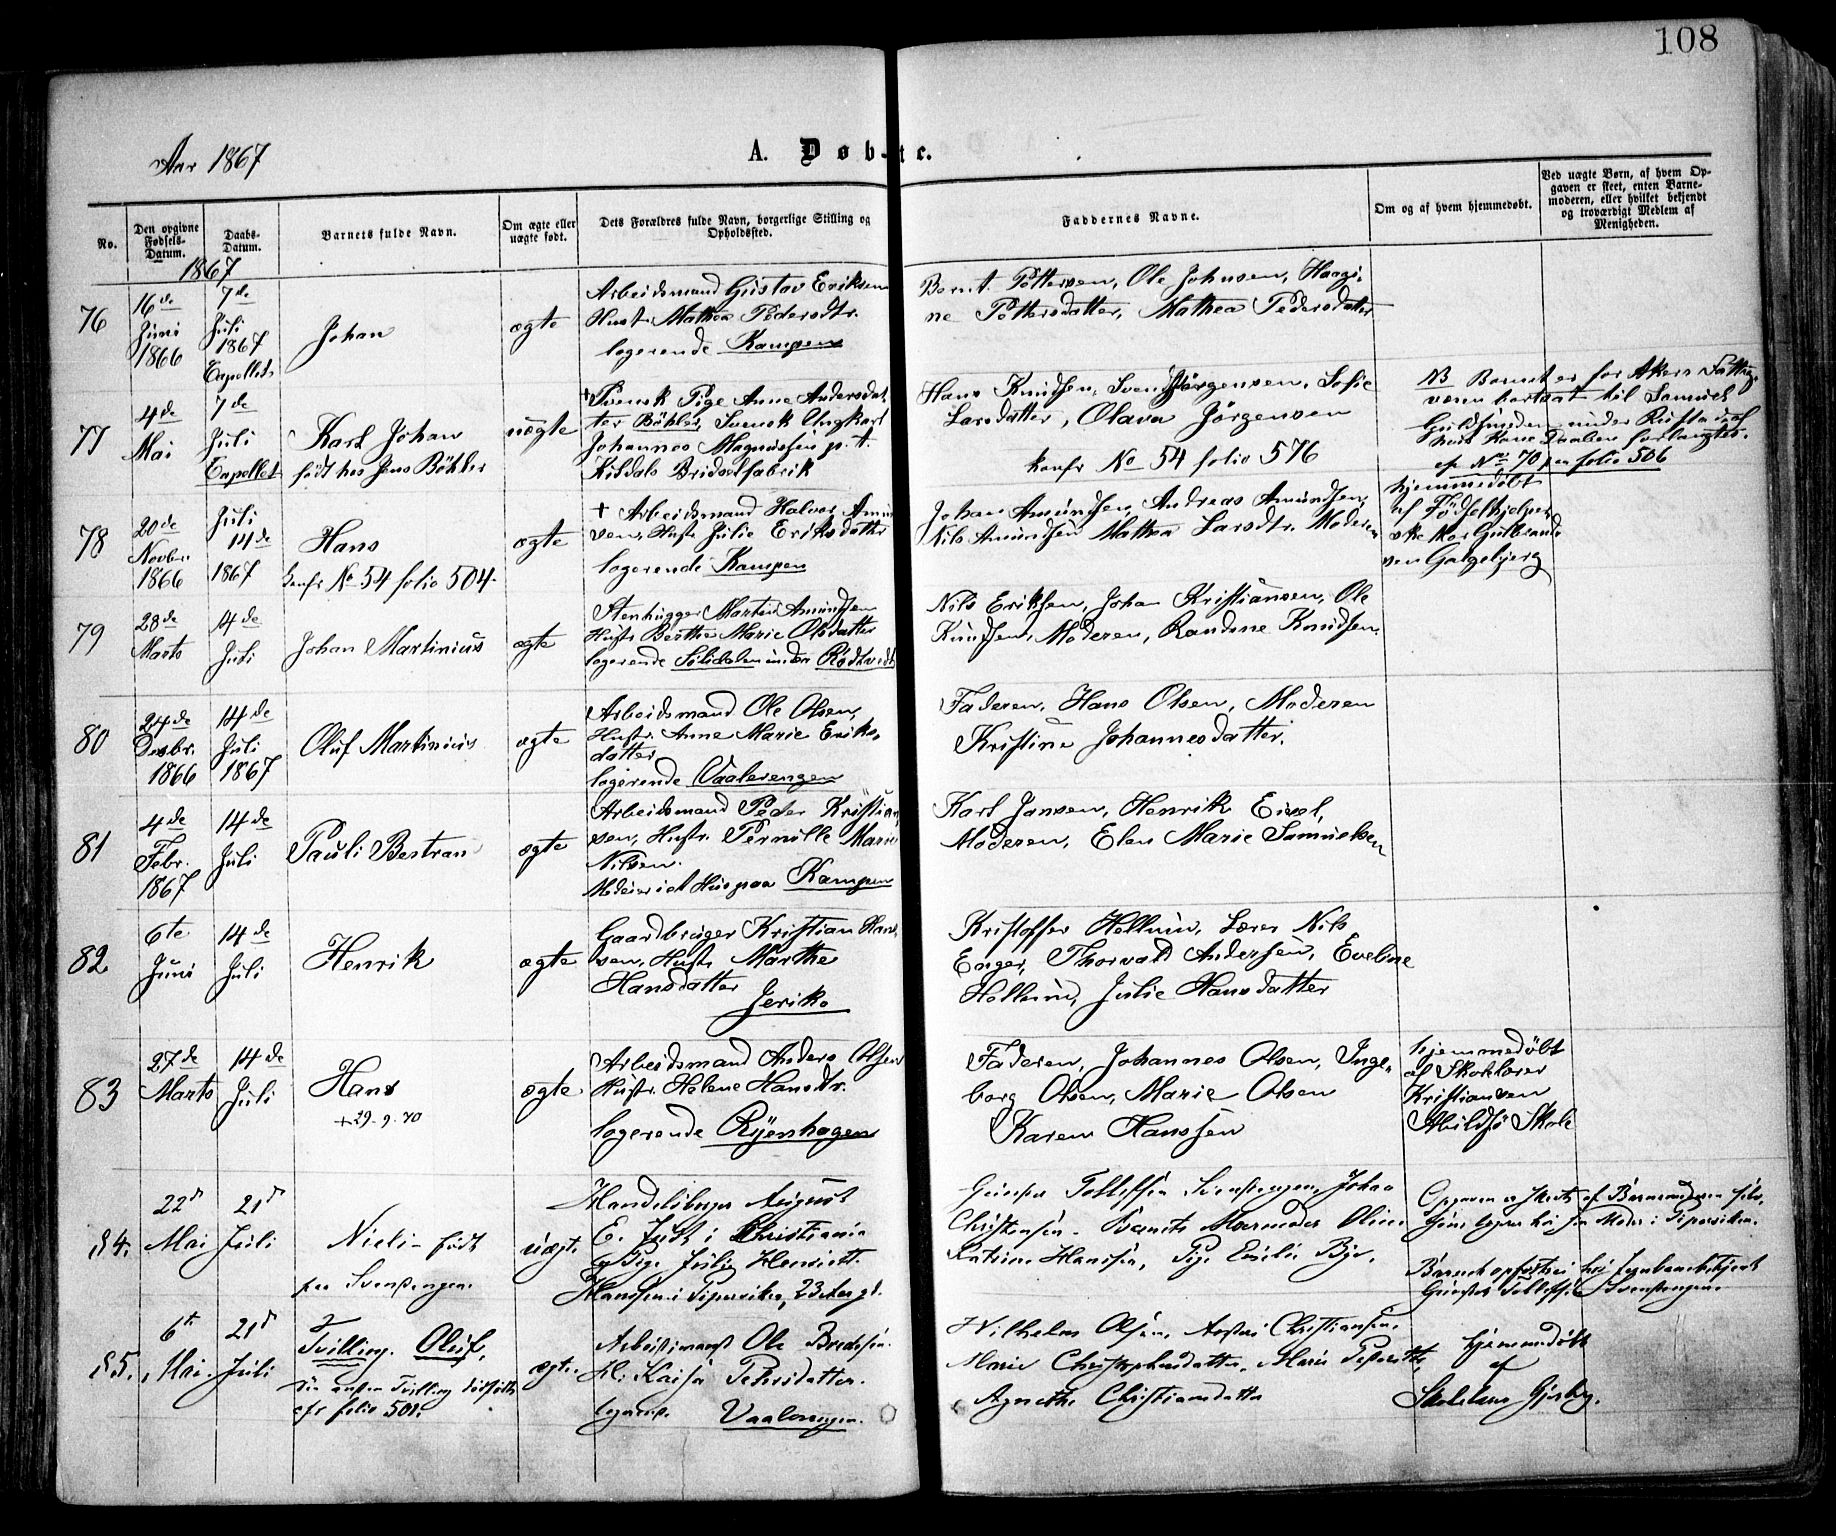 108
Aar 1867
A. Døbte.
No.
Den opgivne Fødsels-Datum.
Daabs-Datum.
Barnets fulde Navn.
Om ægte eller uægte født.
Dets Forældres fulde Navn, borgerlige Stilling og Opholdssted.
Faddernes Navne.
Om og af hvem hjemmedøbt.
Ved uægte Børn, af hvem Opgaven er skeet, enten Barnemoderen, eller hvilket bekjendt og troværdigt Medlem af Menigheden.
1867
76
16de Juni 1866
7de Juli 1867 Capellet
Johan
ægte
Arbeidsmand Gustav Eriksen
Hust. Mathea Pedersdtr.
logerende Kampen
Bernt Pettersen, Ole Johnsen, Haagi-
ne Pettersdatter, Mathea Pedersdatter
77
4de Mai
7de Juli Capellet
Karl Johan
født hos Jens Böhler
uægte
Svensk Pige Anne Andersdat-
ter Böhler, Svensk Ungkarl
Johannes Magnussen p. t.
Bridselfabrik
Hans Knudsen, Svend Jørgensen, Sofie
Larsdatter, Olava Jørgensen
konfr No 54 folio 576
NB Barnet er for Akers Fattig-
væsen bortsat til Samuel
under
forlangter.
cfr No 70 paa folio 506
78
20de Novbr. 1866
Juli 14de 1867
Hans
konfr No 54 folio 504
ægte
+ Arbeidsmand Halvor Amund
sen, Hust. Julie Eriksdatter
logerende Kampen
Johan Amundsen, Andreas Amundsen,
Nils Amundsen Mathea Larsdtr. Moderen
hjemmedøbt
af Fødselhjelper-
ske Kar Gulbrand-
sen Galgebjerg
79
28de Marts
14de Juli
Johan Martinius
ægte
Stenhugger Martin Amundsen
Hust. Berthe Marie Olsdatter
logerende under
Nils Eriksen, Johan Kristiansen, Ole
Knudsen, Moderen, Randine Knudsen.
80
24de Desbr. 1866
14de Juli 1867
Oluf Martinius
ægte
Arbeidsmand Ole Olsen,
Hustr. Anne Marie Eriks-
datter
logerende Vaalerengen
Faderen, Hans Olsen, Moderen
Kristine Johannesdatter.
81
4de Febr. 1867
14de Juli
Pauli Bertran
ægte
Arbeidsmand Peder Kristian
sen, Hustr. Pernille Marie
Nilsen.
Hus paa Kampen
Karl Jansen, Henrik
Moderen, Elen Marie Samuelsen
82
6te Juni
14de Juli
Henrik
ægte
Gaardbruger Kristian Han
sen, Hust. Marthe
Hansdatter
Jeriko
Kristoffer Hellum, Lærer Nils
Enger, Thorvald Andersen, Eveline
Hellum, Julie Hansdatter
83
27de Marts
14de Juli
Hans
+29-9-70
ægte
Arbeidsmand Anders Olsen
Hustr. Helene Hansdtr.
logerende Ryenhagen
Faderen, Johannes Olsen, Inge-
borg Olsen, Marie Olsen
Karen Hanssen
hjemmedøbt
af Skolelærer
Kristiansen
Abildsø Skole
84.
22d Mai
21d Juli
født
paa Svenstengen.
uægt.
August
E. i Christiania
og Pige Julie Henriette
Hanssen i Pipervika, 23 Aar gl.
Gunder Tollefsen Svenstengen, Johan
Christensen.
Katrine Hanssen, Pige Emilie
Opgaven er skeet af Barnemoderen selv.
Moder i Pipervika.
Barnet opfostres hos
Gunder Tollefs. Svenstengen.
85.
6te Mai
21d Juli
Tvilling. Oluf,
Den anden Tvilling dødfødt
cfr folio 501.
ægte.
Arbeidsmand Ole
H. Kaisa Petersdatter.
logerende Vaalerengen.
Wilhelm Olsen, Christiansen.
Marie Christophersdatter, Maria
Agnethe Christiansdatter
hjemmedøbt
af
Skolelærer Gjerberg.